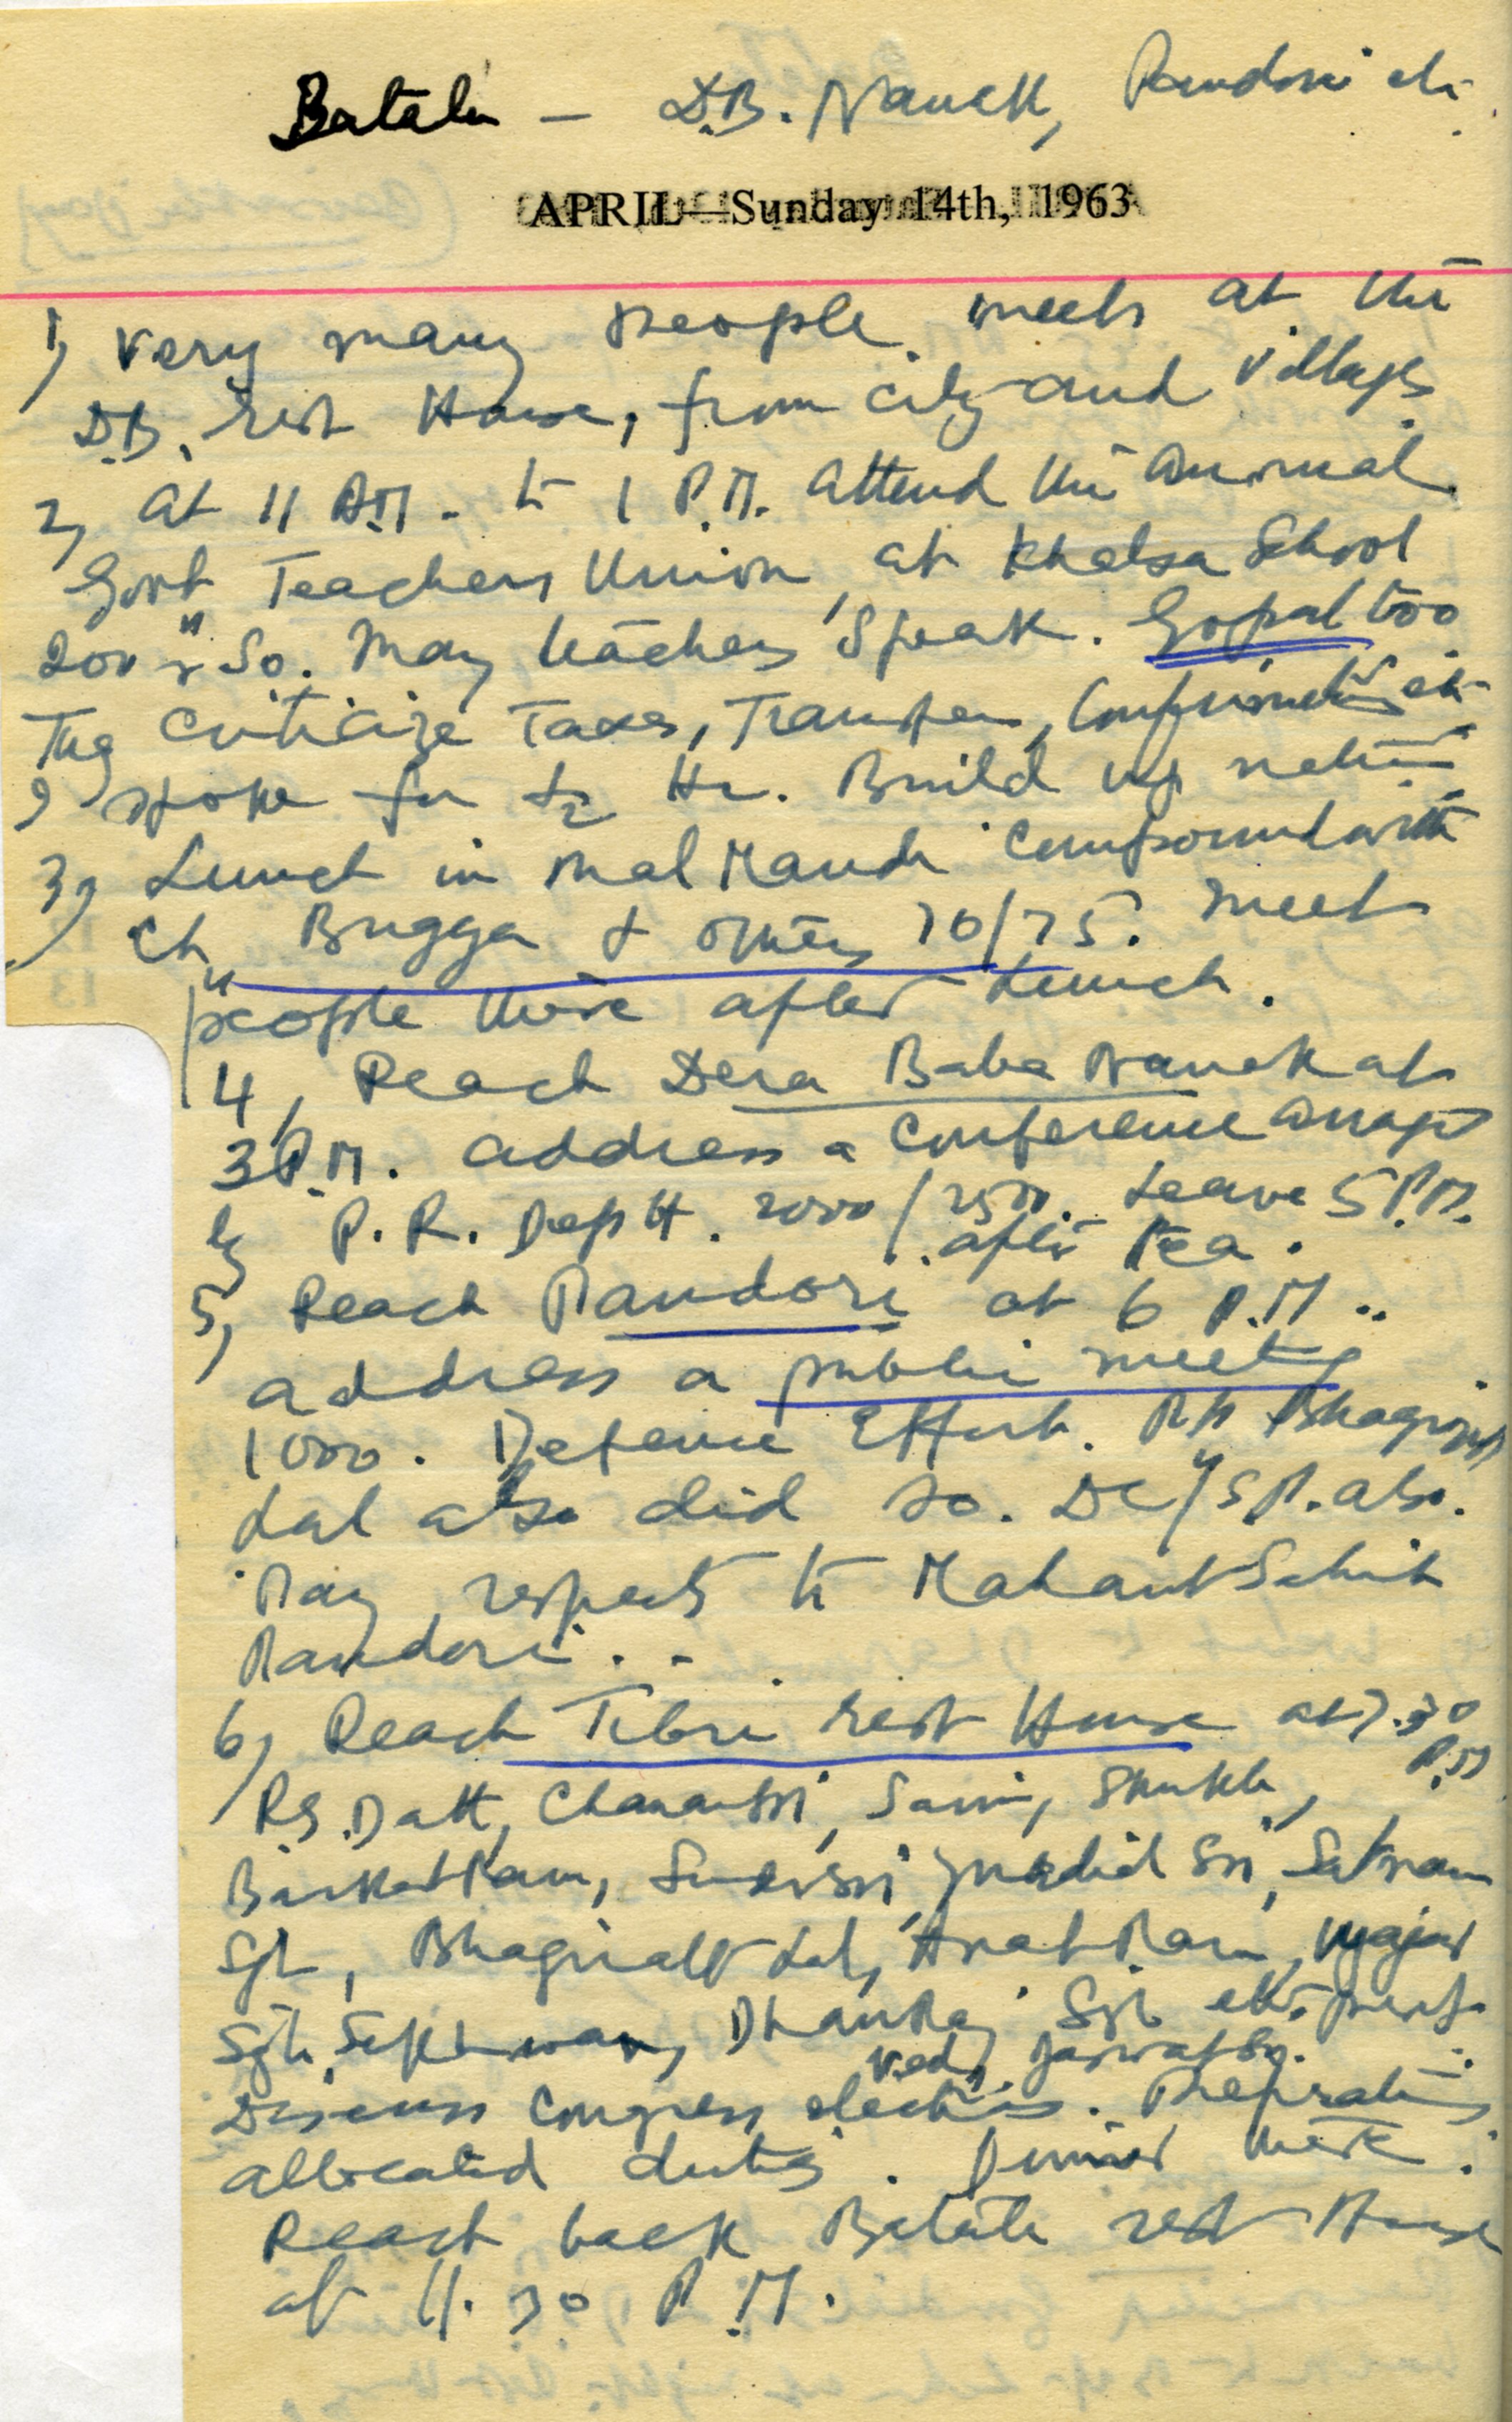 Batala — D.B. Nanak, Pandori etc.
APRIL—Sunday 14th, 1963
1) Very many people meet at the
D.B. rest House, from city and villages.
2) at 11 A.M. to 1 P.M. attend the annual
Govt Teachers Union at Khalsa School
200 or so. Many teachers speak. Gopal too
They criticize Taxes, Transfers, etc.
I spoke for ½ Hr. Build up nation
3) Lunch in Mal Mandi compound with
Ch Bugga & others 70/75. meet
people there after Lunch.
4) Reach Dera Baba Nanak at
3 P.M. address a conference arrangd
by P.R. Deptt. 2000/2500. Leave 5 P.M.
after tea.
5) Reach Pandori at 6 P.M..
address a public meetg
1000. Defence Effort. Pt Bhagirath
Lal also did so. DC/S.P. also.
Pay respects to Mahant Sahib
Pandori..
6) Reach Tibri rest House at 7.30
P.M
R.S. Datt, Chanan Sri, Saini,
Barkat Ram, Sri, Satnam
Sgh, Bhagirath Lal, Amat Ram, Ujagar
Sgh Sekhwan, Dhanraj Sgh etc.
Ved,
Discuss Congress elections. Preprations
allocated duties. Dinner there.
Reach back Batala rest House
at 11.30 P.M.